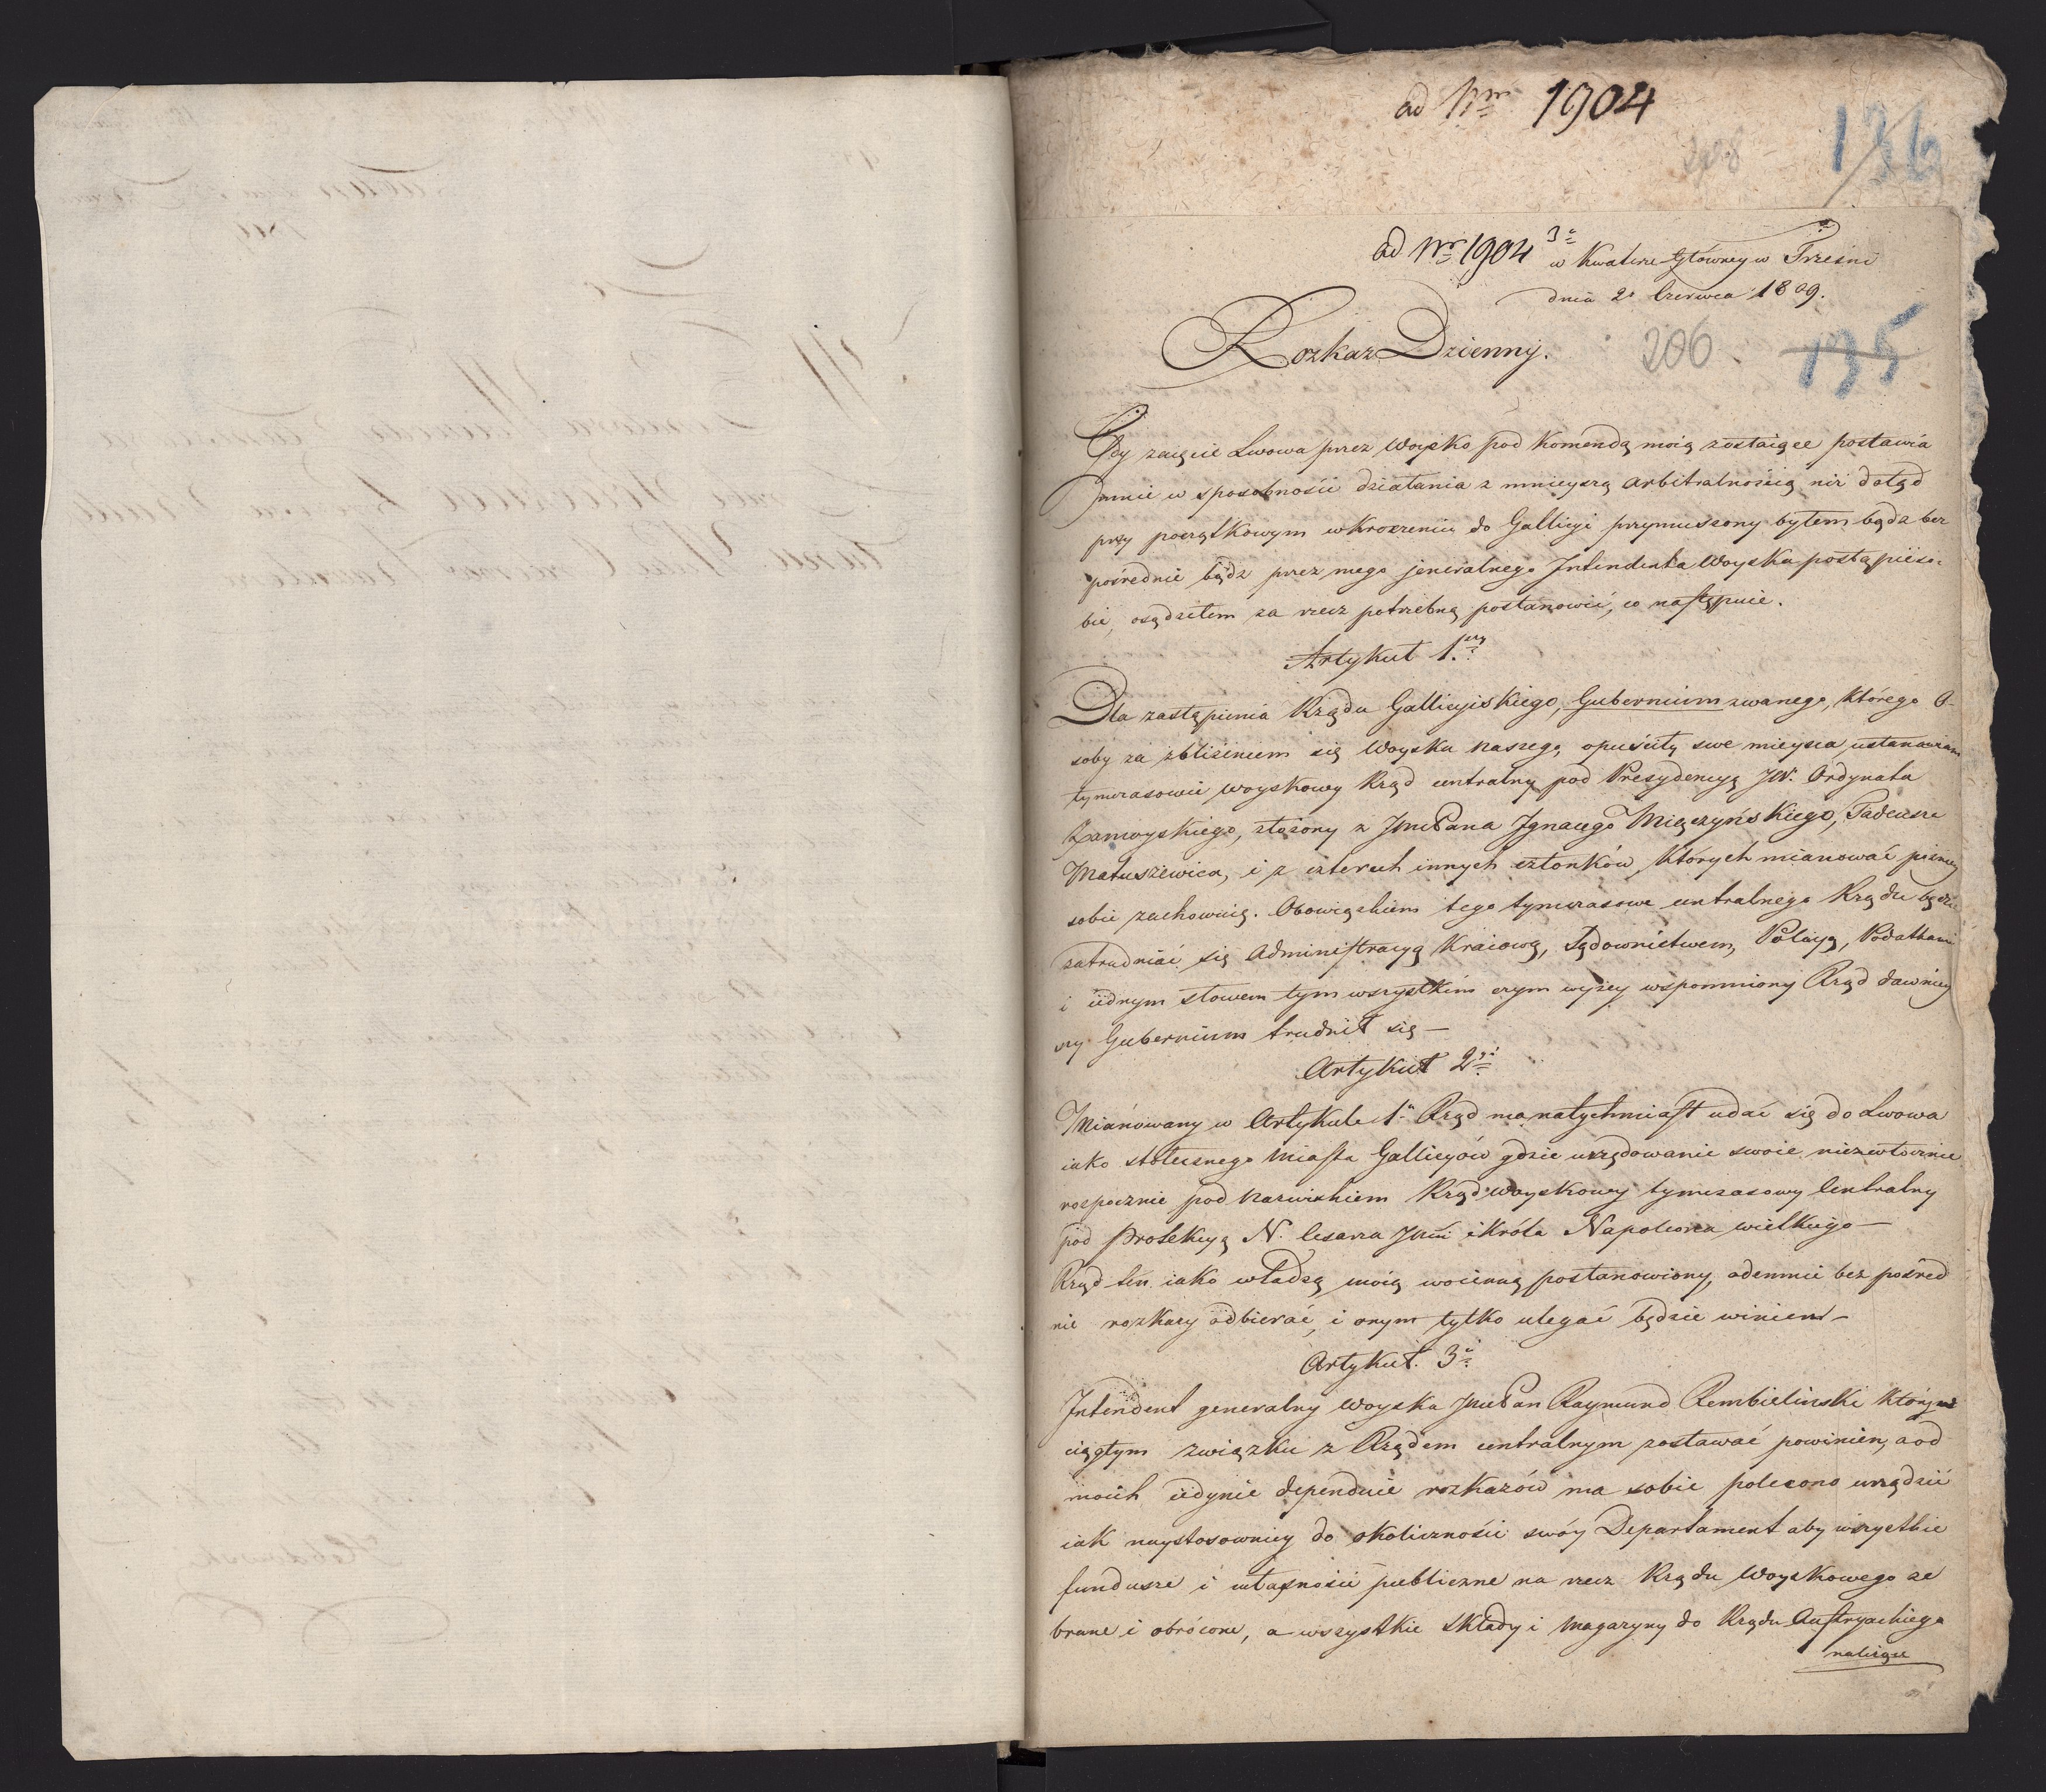 ad Nrm 1904
208
136
ad Nr 1904 3o
w Kwaterze Główney w Trześni
dnia 2o Czerwca 1809.
Rozkaz Dzienny.
206
135
Gdy zaięcie Lwowa przez Woysko pod Komendą moią zostaiące postawia
mnie w sposobności działania z mnieyszą arbitralnością niż dotąd
przy początkowym wkroczeniu do Gallicyi przymuszony byłem bądz bez
pośrednie, bądz przez mego jeneralnego Intendenta Woyska postąpić so-
bie, osądziłem za rzecz potrzebną postanowić, co następuie.
Artykuł 1.szy
Dla zastąpienia Rządu Gallicyiskiego, Gubernium zwanego, którego O-
soby za zbliżeniem się Woyska naszego, opuściły swe mieysca ustanawiam
tymczasowie woyskowy Rząd centralny pod Presydencyą JW. Ordynata
Zamoyskiego, złożony z JmcPana Ignacego Miączyńskiego, Tadeusza
Matuszewica, i z czterech innych członków, których mianować pózniey
sobie zachowuię. Obowiązkiem tego tymczasowe centralnego Rządu będzie
zatrudniać się administracyą Kraiową, sądownictwem, Policyą, Podatkami
i iednym słowem tym wszystkim czym wyżey wspomniony Rząd dawniey
szy Gubernium trudnił się —
Artykuł 2gi
Mianowany w Artykule 1o Rząd ma natychmiast udać się do Lwowa
iako stołecznego Miasta Gallicyów gdzie urzędowanie swoie niezwłocznie
rozpocznie pod nazwiskiem Rząd woyskowy tymczasowy Centralny
pod Protekcyą N. Cesarza Jmci i Króla Napoleona wielkiego —
Rząd ten iako władzą moią woienną postanowiony, odemnie bez pośred
nie rozkazy odbierać, i onym tylko ulegać będzie winien —
Artykuł. 3i
Intendent generalny Woyska JmcPan Raymund Rembielinski który w
ciągłym związku z Rządem centralnym zostawać powinien, a od
moich iedynie dependuie rozkazów ma sobie polecono urządzić
iak naystosowniey do okoliczności swóy Departament aby wszystkie
fundusze i własności publiczne na rzecz Rządu Woyskowego ze
brane i obrócone, a wszystkie składy i magazyny do Rządu Austryackiego
należące